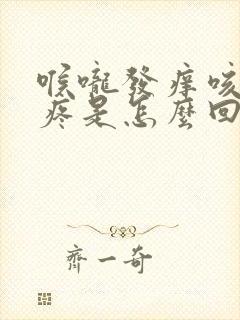 喉嚨發癢咳
疼是怎麼回
齊一奇